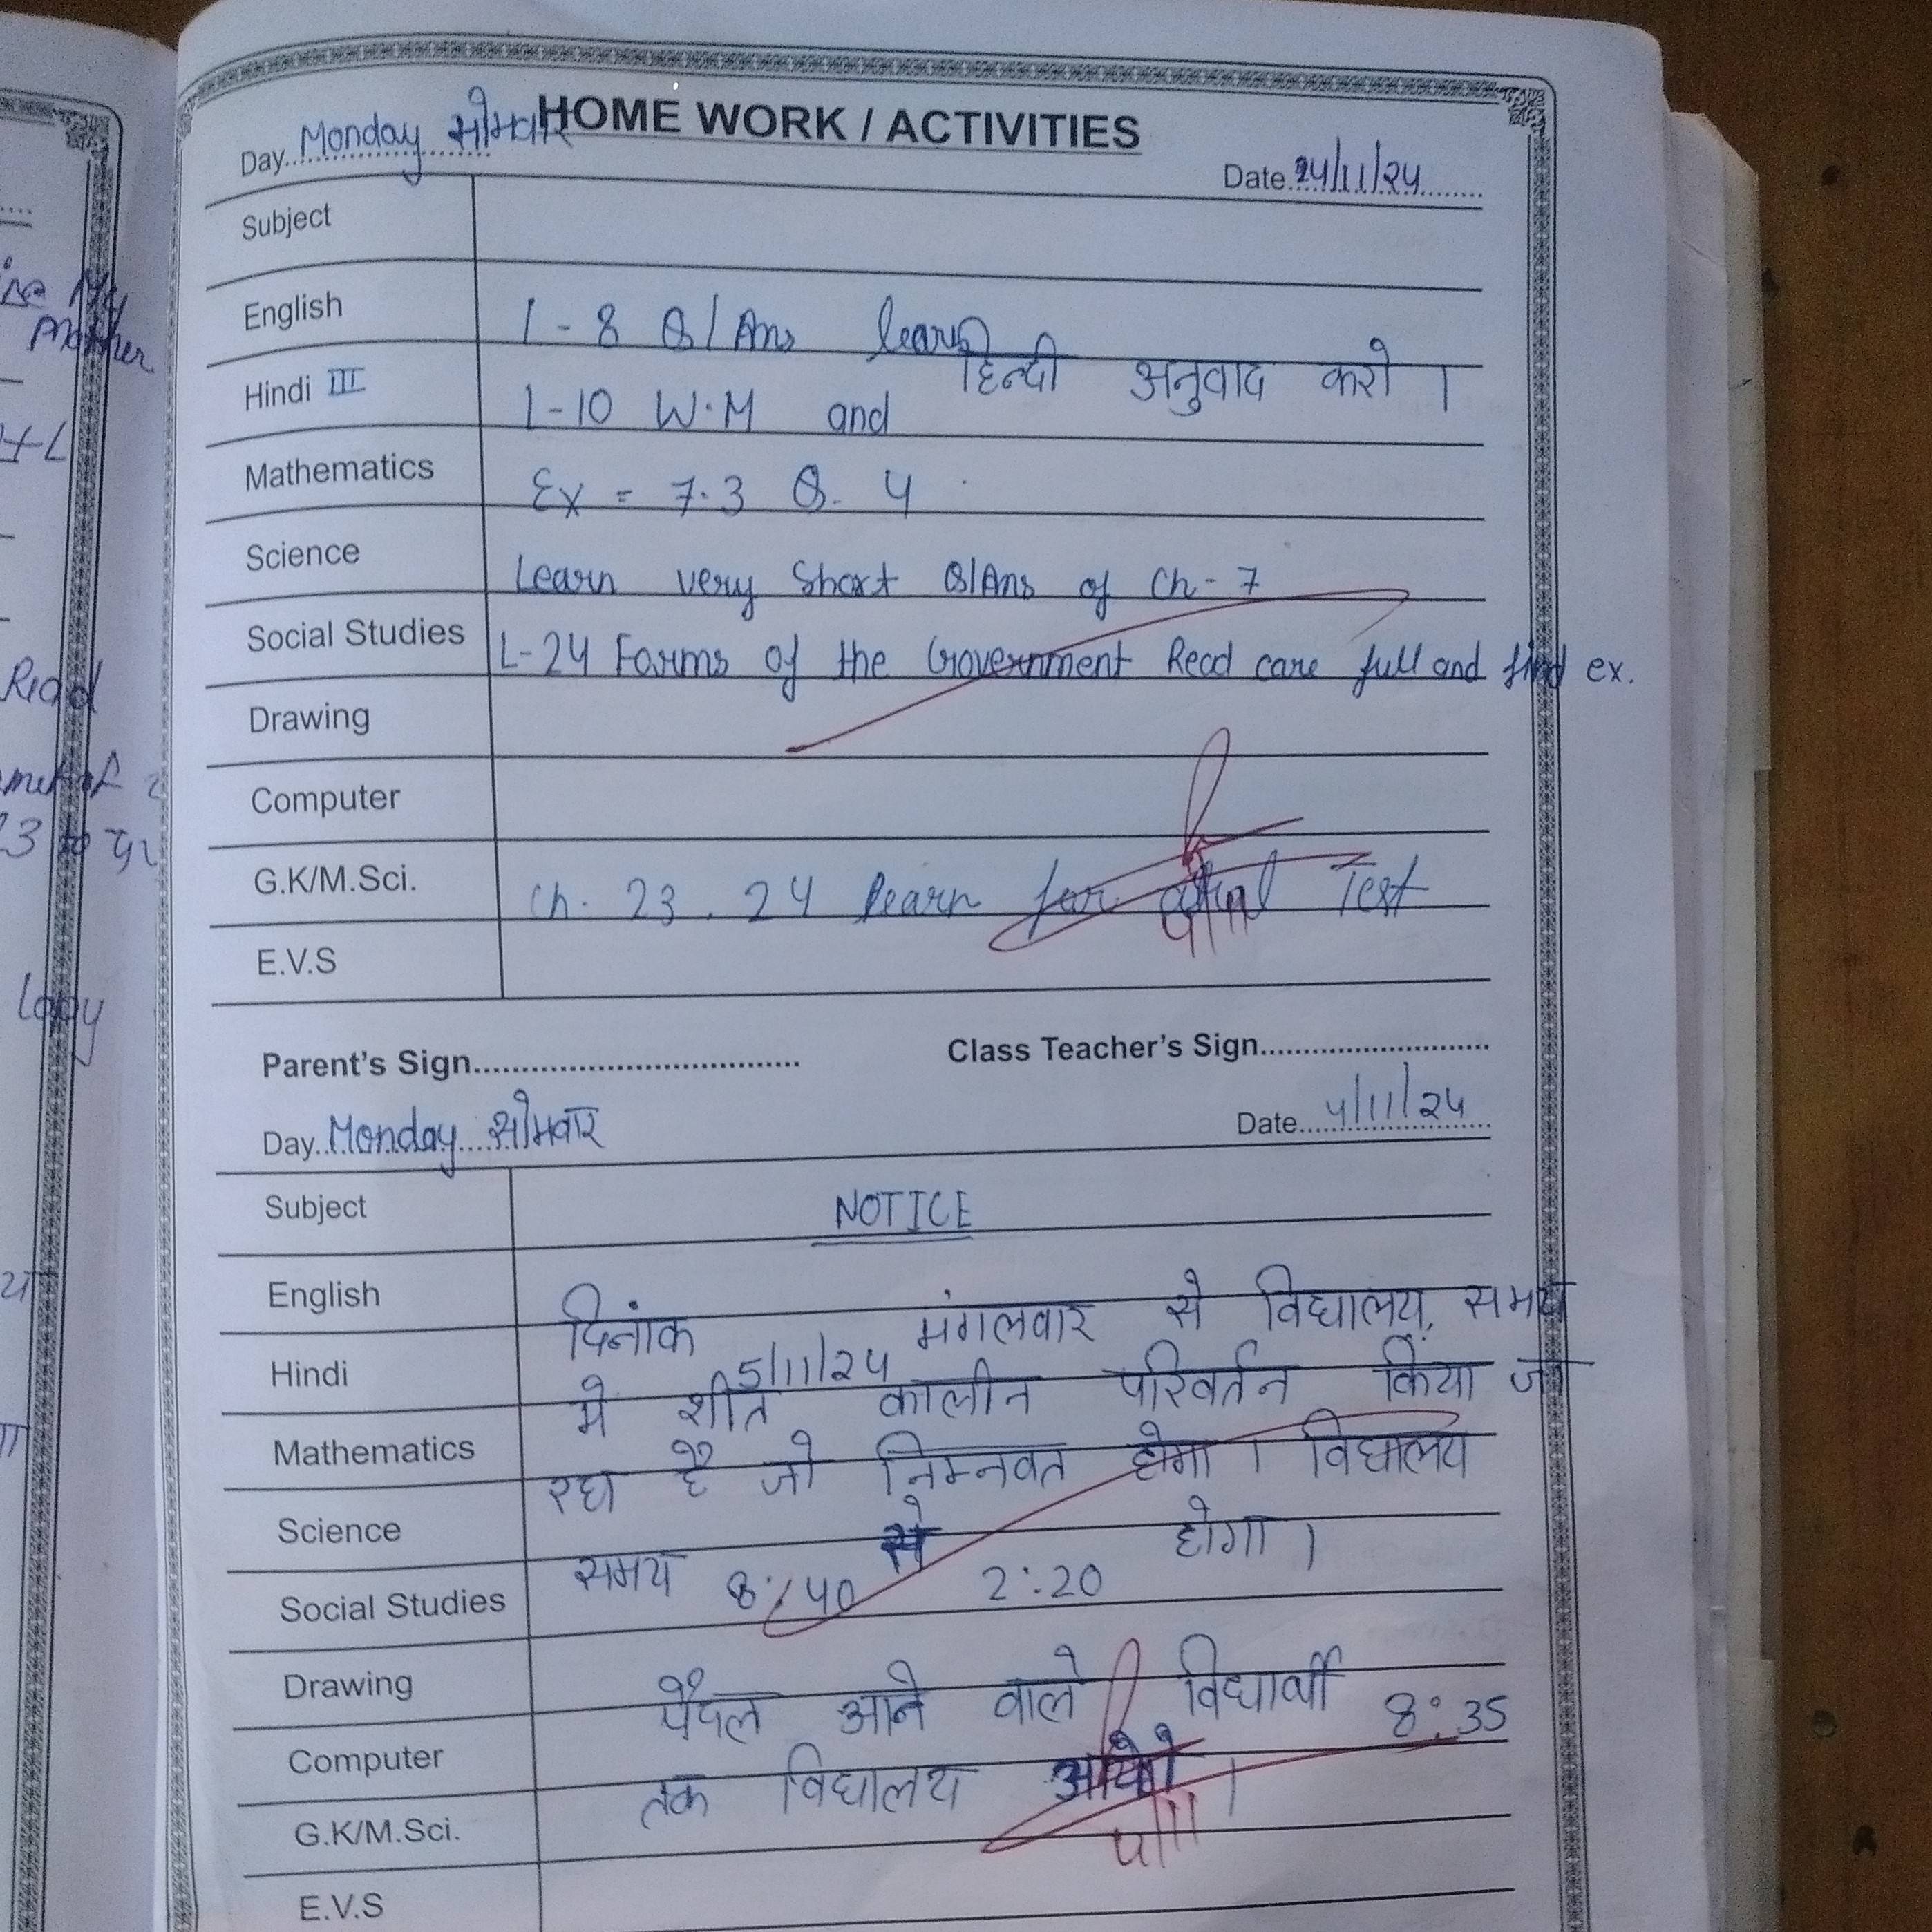 HOME WORK / ACTIVITIES
Day Monday सोमवार
Date 24/11/24
Subject
English L-8 Q/Ans learn
Hindi III L-10 W.M and हिन्दी अनुवाद करो ।
Mathematics Ex = 7.3 Q. 4
Science Learn very Short Q/Ans of Ch-7
Social Studies L-24 Forms of the Government Read care full and find ex.
Drawing
Computer
G.K/M.Sci. Ch. 23, 24 learn for Test
E.V.S
Parent's Sign
Class Teacher's Sign
Day Monday सोमवार
Date 4/11/24
Subject NOTICE
English दिनांक 5/11/24 मंगलवार से विद्यालय, समय
Hindi मे शीत कालीन परिवर्तन किया जा
Mathematics रहा है जो निम्नवत होगा । विद्यालय
Science समय 8:40 से 2:20 होगा ।
Social Studies
Drawing पैदल आने वाले विद्यार्थी 8:35
Computer तक विद्यालय ।
G.K/M.Sci.
4/11
E.V.S
Read
Copy